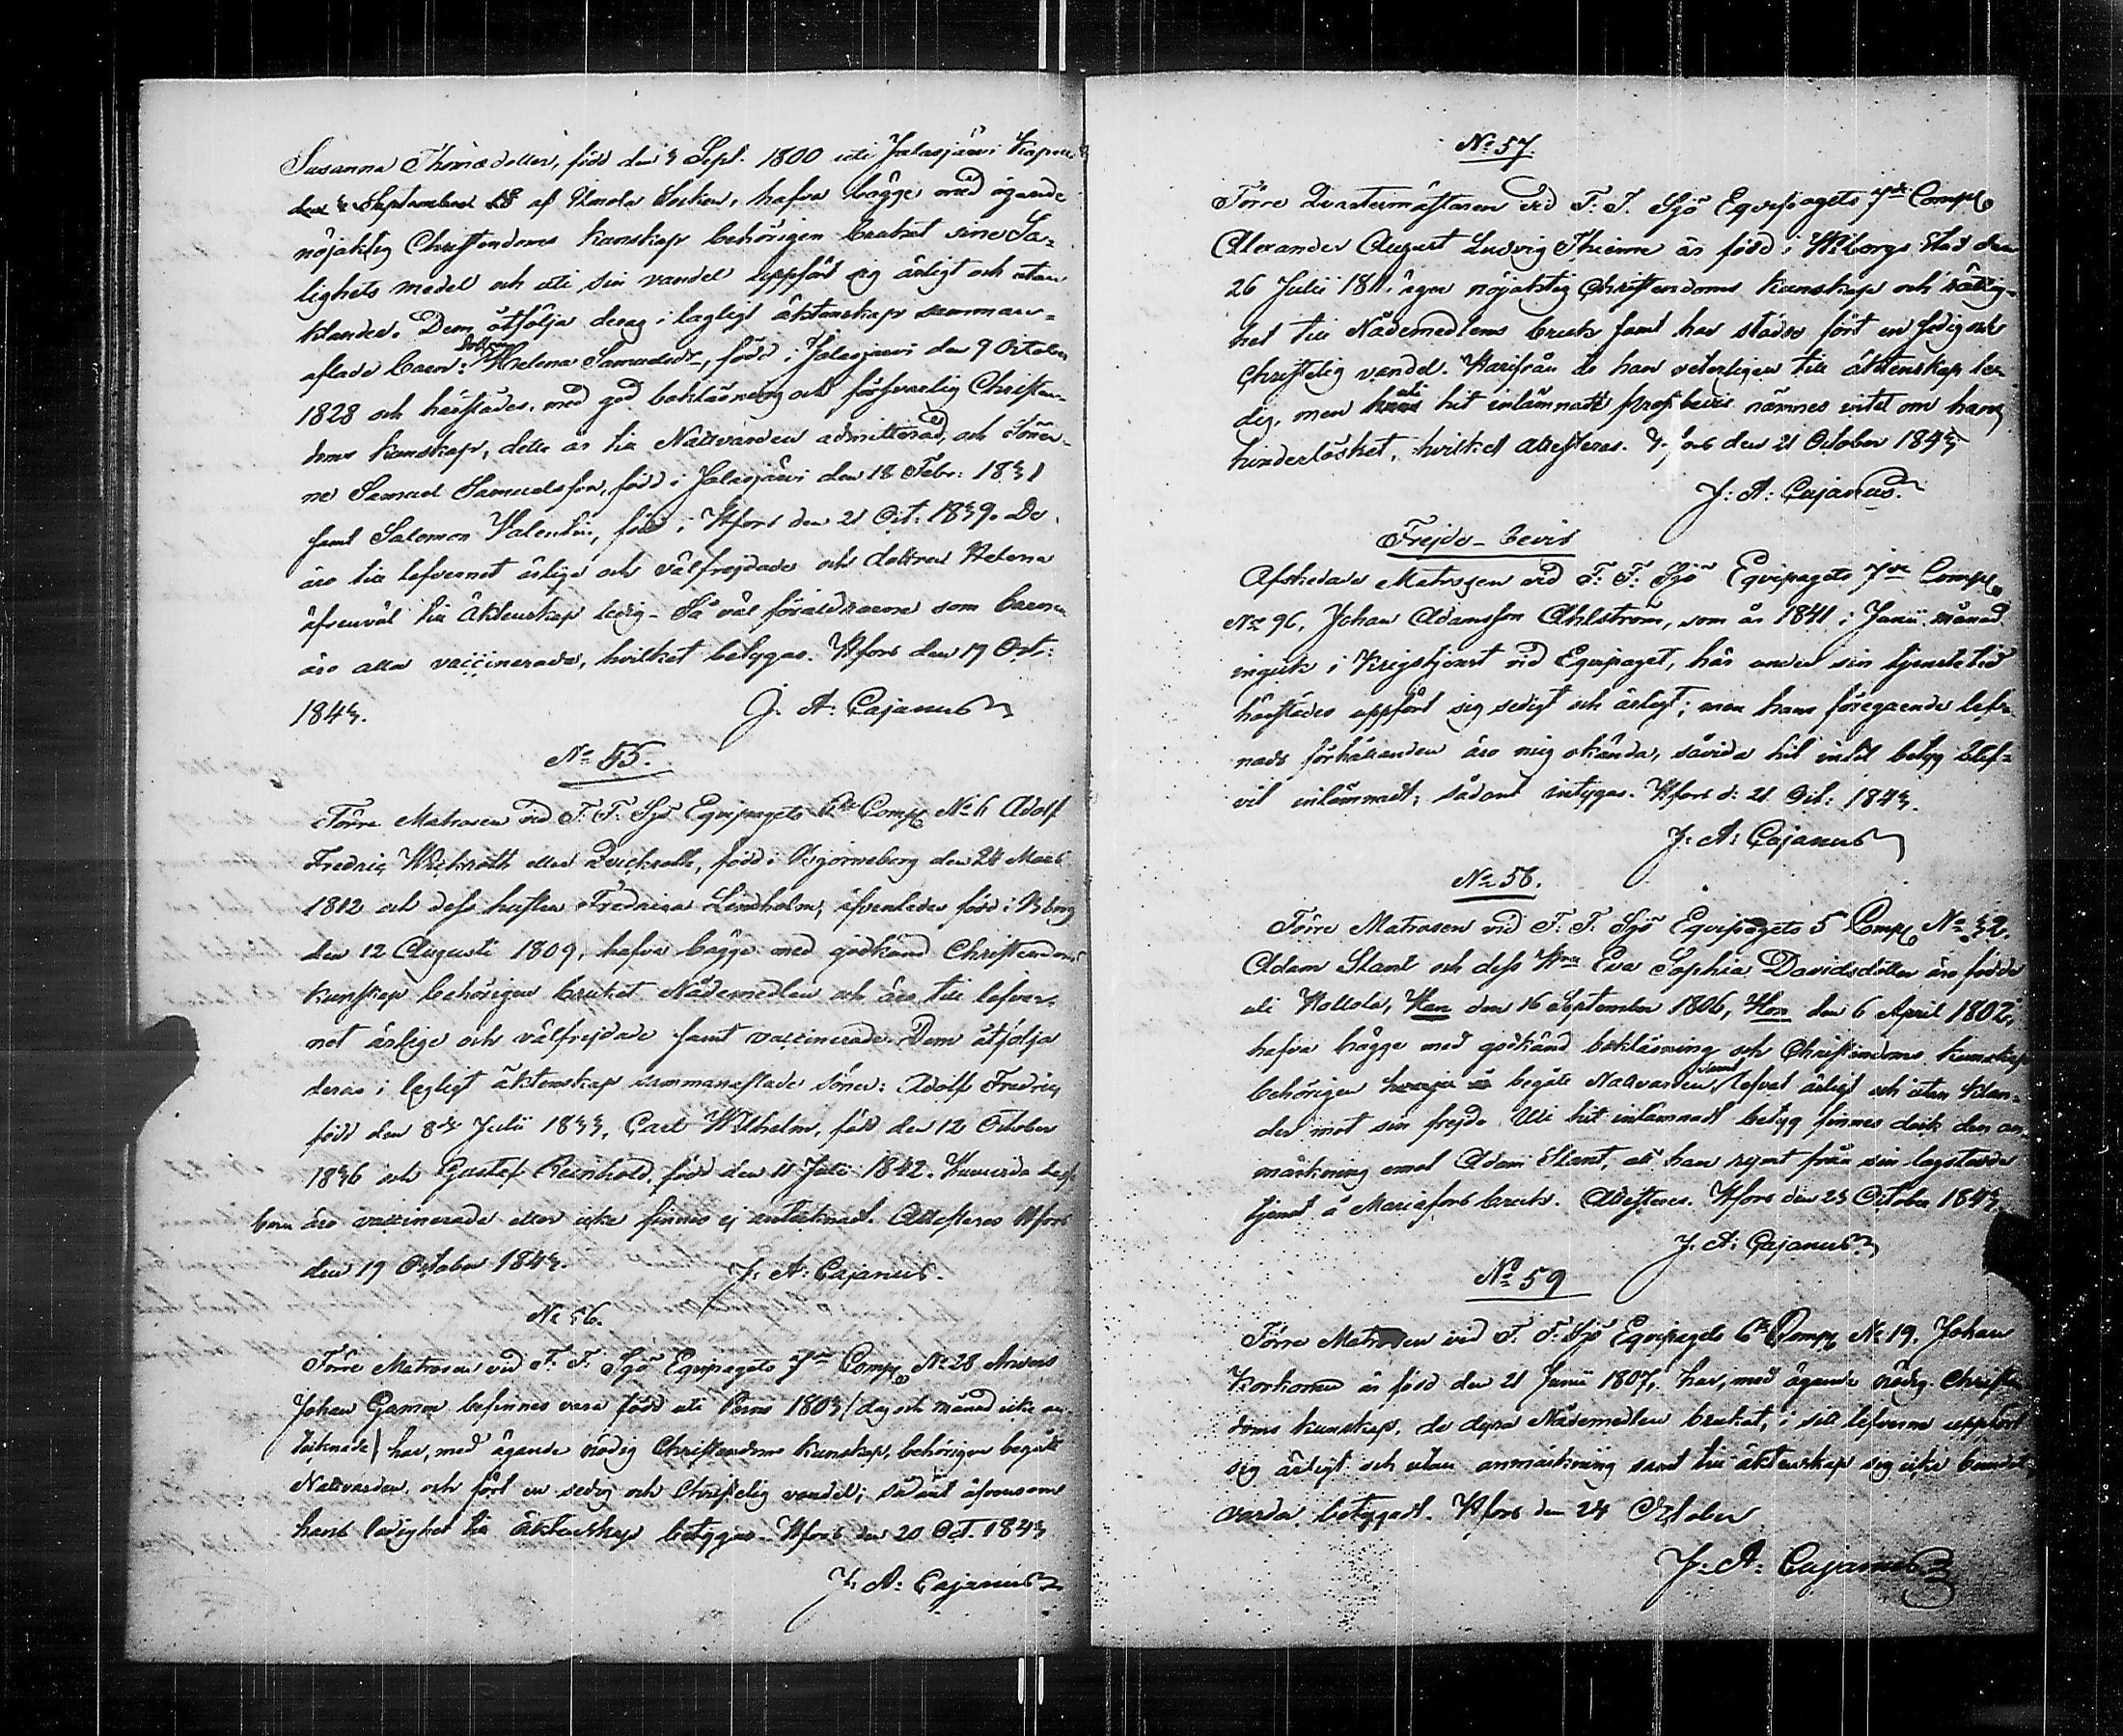 Susanna Thomædotter, född den 3 Sept. 1800 uti Jalasjärvi Kapell
den 3 September 18 af Ilmola Socken, hafva bägge med ägande
nöjaktig Christendoms kunskap behörigen brukat sine Sa-
lighets medel och uti sin vandel uppfört sig ärligt och utan
klander. Dem åtfölja deras i lagligt äktenskap samman-
aflade barn: dottren Helena Samuelsdr, född i Jalasjärvi den 9 October
1828 och härstädes, med god bokläsning och försvarlig Christen-
doms kunskap, dette år till Nattvarden admitterad, och Söner-
ne Samuel Samuelsson, född i Jalasjärvi den 18 Febr: 1831
samt Salomon Valentin, född i Hfors den 21 Oct: 1839. De
äro till lefvernet ärlige och välfrejdade och dottren Helena
äfvenväl till äktenskap ledig - Så väl föräldrarne som barnen
äro alla vaccinerade, hvilket betygas. Hfors den 19 Oct:
1843.
J. A: Cajanus
No 55.
Förre Matrosen vid F. F: Sjö Equipagets 6te Comp No 6 Adolf
Fredric Wickroth eller Quickroth, född i Björneborg den 28 Mars
1812 och dess hustru Fredrica Lindholm, äfvenledes född i Bborg
den 12 Augusti 1809, hafva bägge med godkänd Christendoms
kunskap behörigen brukat Nådemedlen och äro till lefver-
net ärlige och välfrejdade samt vaccinerade. Dem åtfölja
deras i lagligt äktenskap sammanaflade söner: Adolf Fredric
född den 8de Julii 1833, Carl Wilhelm, född den 12 October
1836 och Gustaf Reinhold, född den 11 Julii 1842. Huruvida dess
barn äro vaccinerade eller icke finnes ej antecknadt. Attesteras Hfors
den 19 October 1843.
J: A: Cajanus.
No 56.
Förre Matrosen vid F. F. Sjö Equipagets 7de Comp No 28 Anders
Johan Gamm befinnes vara född uti Perno 1803 / dag och månad icke an-
tecknade / har, med ägande nödig Christendoms kunskap, behörigen begått
Nattvarden, och fört en sedig och Christelig vandel; sådant äfvensom
hans ledighet till äktenskap betygas. Hfors den 20 Oct. 1843
J. A: Cajanus
No 57.
Förre Qvartermästaren vid F. F. Sjö Equipagets 7de Comp
Alexander August Ludvig Thieme är född i Wiborgs Stad den
26 Julii 1811. äger nöjaktig Christendoms kunskap och rättig-
het till Nådemedlens bruk samt har städse fört en sedig och
Christelig vandel. Härifrån är han veterligen till äktenskap le-
dig, men uti hit inlämnadt prestbevis nämnes intet om hans
hinderlöshet, hvilket attesteras. Hfors den 21 October 1843
J: A: Cajanus.
Frejde-bevis
Afskedade Matrosen vid F: F: Sjö Equipagets 7de Comp
No 96, Johan Adamsson Ahlström, som år 1841 i Junii månad
ingick i Krigstjenst vid Equipaget, har under sin tjenstetid
härstädes uppfört sig sedigt och ärligt; men hans föregående lefv-
nads förhållanden äro mig okända, såvida hit intet betyg blif-
vit inlämnadt; sådant intygas. Hfors d: 21 Oct: 1843.
J: A: Cajanus
No 58.
Förre Matrosen vid F. F. Sjö Equipagets 5 Comp No 32.
Adam Stant och dess Hru Eva Sophia Davidsdotter äro födde
uti Hollola, Han den 16 September 1806, Hon den 6 April 1802;
hafva bägge med godkänd bokläsning och Christendoms kunskap
behörigen begått Nattvarden, samt lefvat ärligt och utan klan-
der mot sin frejd. Uti hit inlämnadt betyg finnes dock den an-
märkning emot Adam Stant, att han rymt från sin lagstadda
tjenst å Mariefors bruk. Attesteras. Hfors den 23 October 1843
J. A: Cajanus
No 59
Förre Matrosen vid F. F. Sjö Equipagets 6te Comp No 19. Johan
Korhonen är född den 21 Junii 1807, har, med ägande nödig Christen-
doms kunskap, de dyra Nådemedlen brukat, i sitt lefverne uppfört
sig ärligt och utan anmärkning samt till äktenskap sig icke bundit
varder betygadt. Hfors den 24 October
J: A: Cajanus